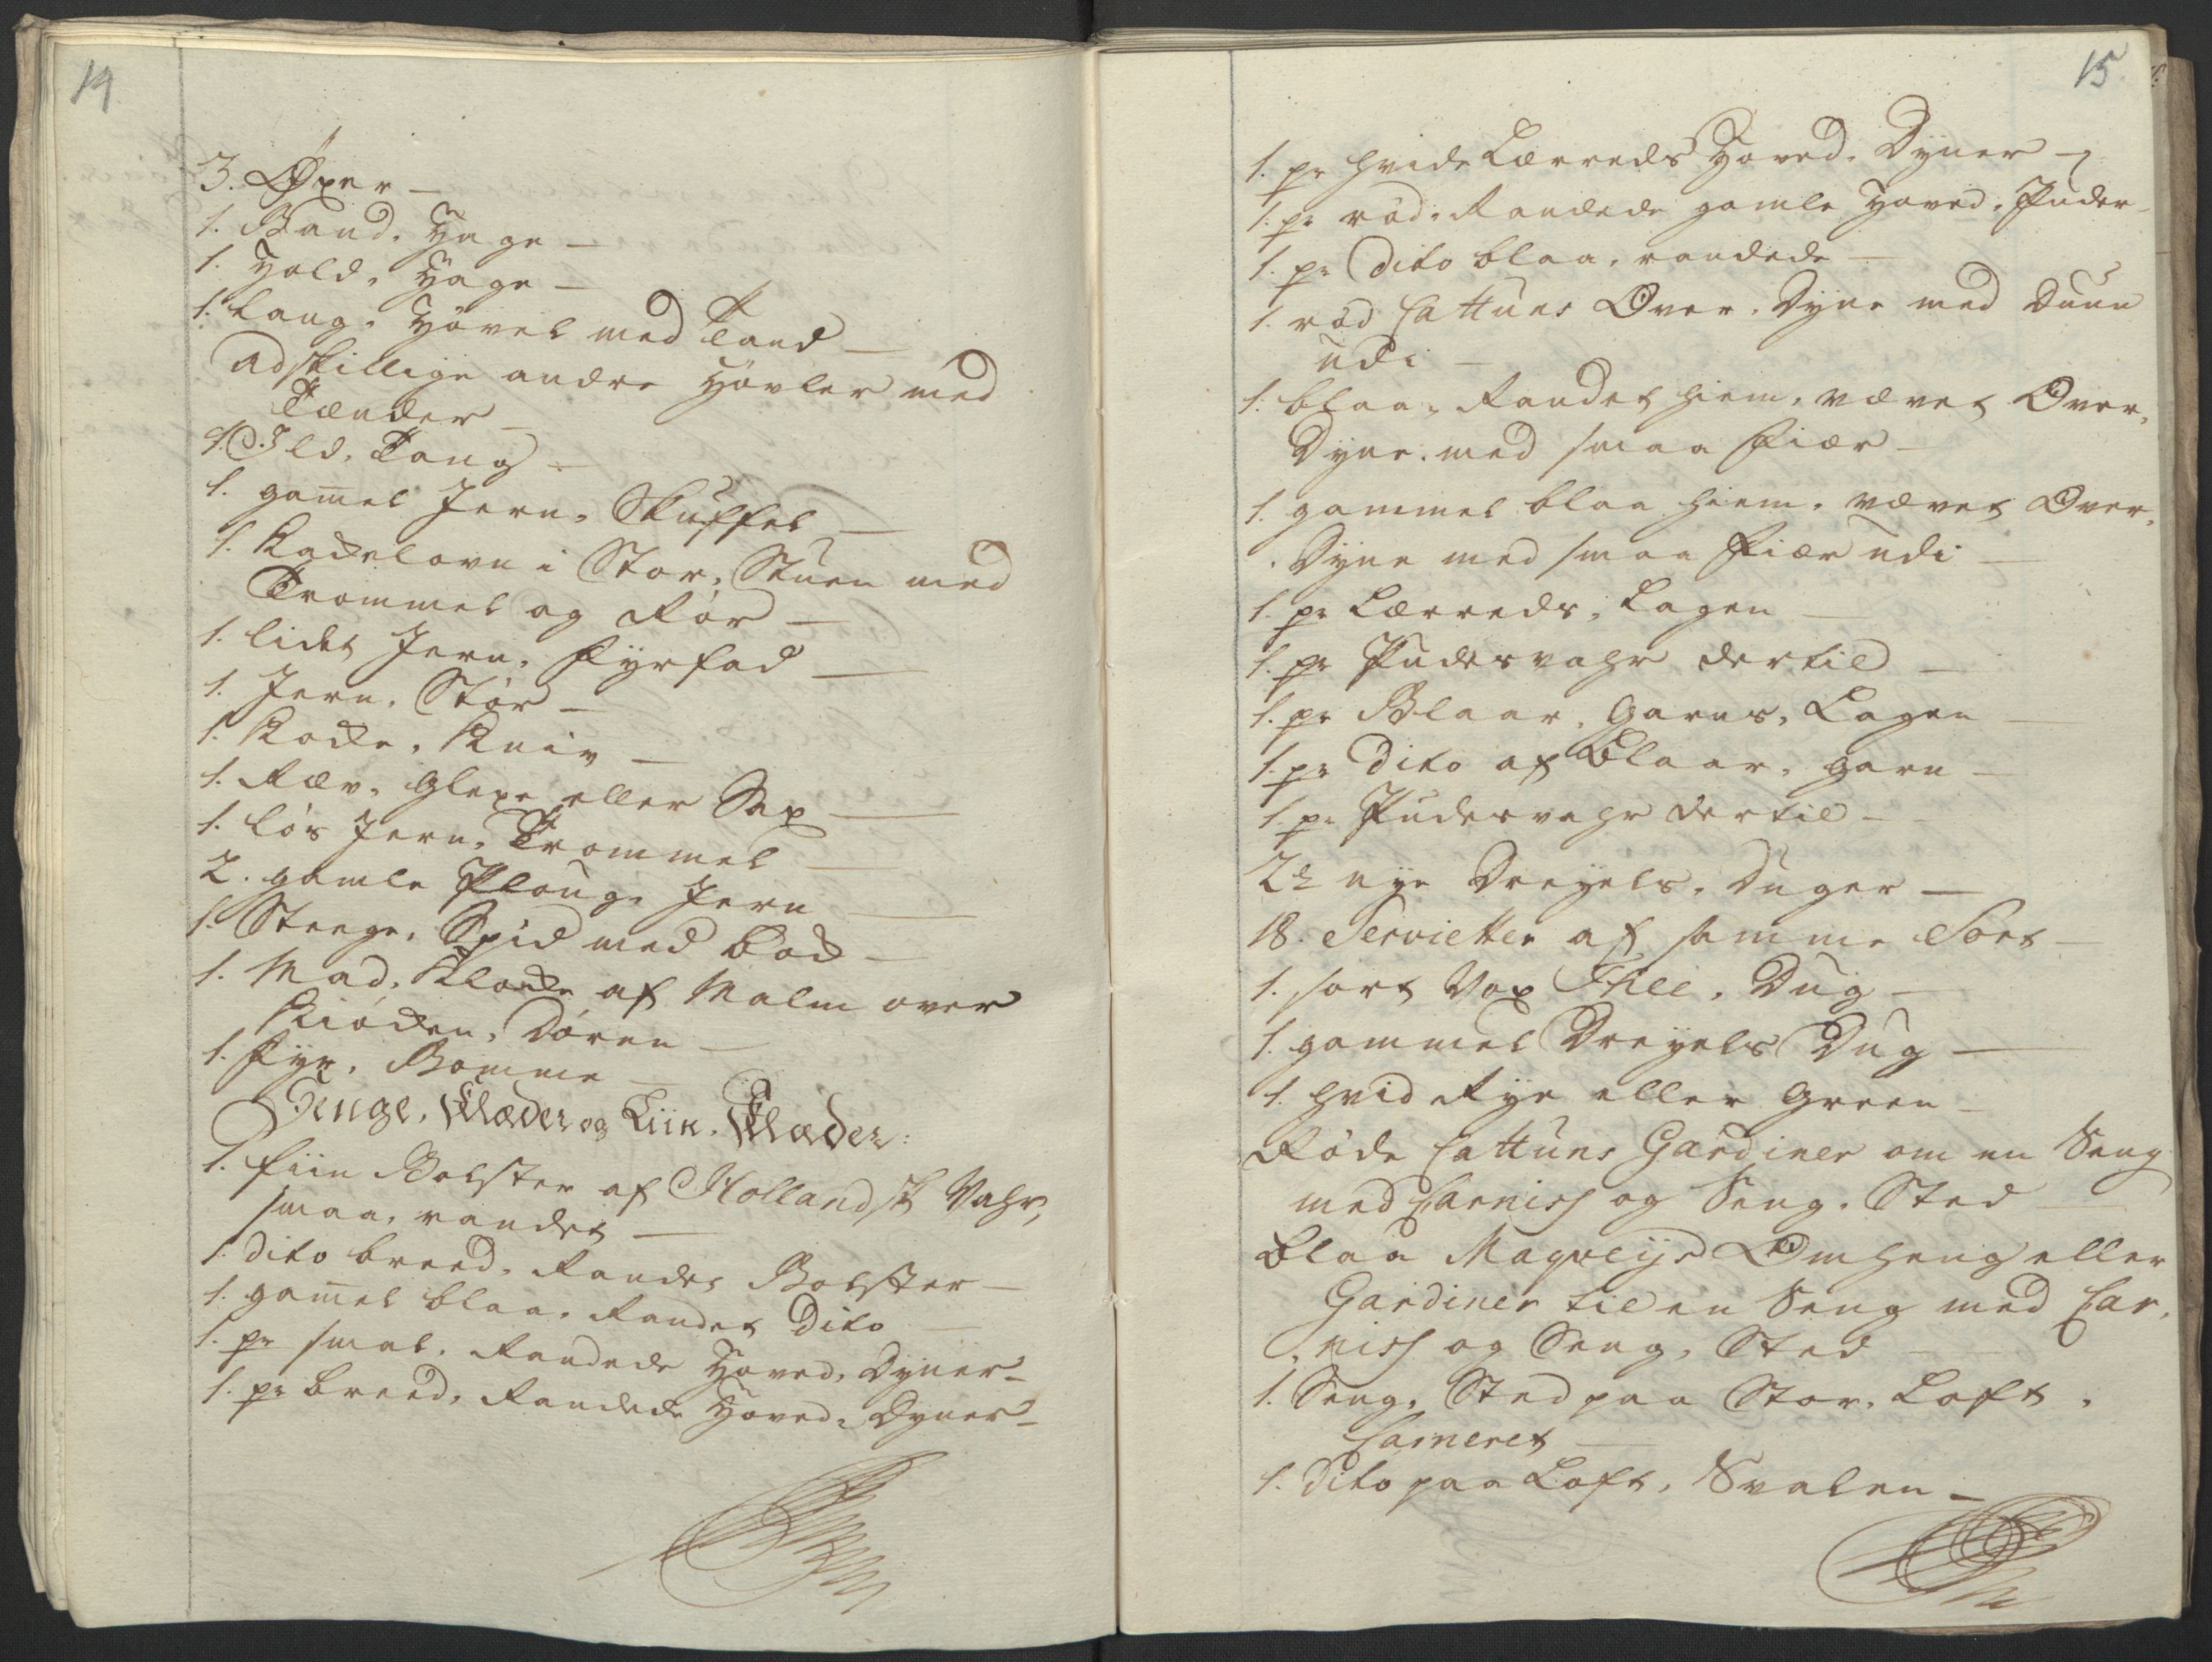 14
3. Øxer —
1. Band. Hage —
1. Hold. Hage —
1. Lang. Hövel med Tand —
adskillige andre Hövler med
Tænder —
1. Ild. Tang —
1. gam̅el Jern. Skuffel —
1. Kakelovn i Stor. Stuen med
Trommel og Rör —
1. lidet Jern. Fyrfad —
1. Jern. Stör —
1. Kokke. Kniv —
1. Ræv. Glexe eller Sax —
1. lös Jern. Trommel —
2. gamle Ploug. Jern —
1. Steege. Spid med Lod —
1. Mad. Klokke af Malm over
Kiökken. Dören —
1. Fyr. Bomme —
Senge. Klæder og Liin. Klæder:
1. fiin Bolster af Hollandsk Vahr,
smaa. randet —
1. dito breed. Randet Bolster —
1. gam̅el blaa. Randet dito —
1. pr smal. Randede Hoved. Dyner —
1. pr breed. Randede Hoved. Dyner —
15
1. pr hvide Lærreds Hoved. Dyner —
1. pr röd. Randede gamle Hoved. Puder —
1. pr dito blaa. randede —
1. röd Cattuns Over. Dyne med Duun
udi —
1. blaa. Randet hiem. vævet Over.
Dyne. med smaa Fiær —
1. gammel blaa hiem. vævet Over.
. Dyne med smaa Fiær udi —
1. pr Lærreds. Lagen —
1. pr Pudesvahr dertil —
1. pr Blaar. Garns. Lagen —
1. pr dito af Blaar. garn —
1. pr Pudesvahr dertil —
2 nye Dreyels. Duger —
18. Servietter af samme Sort —
1. sort Vox Thee. Dug —
1. gammel Dreyels Dug —
1. hvid Rye eller Green —
Röde Cattuns Gardiner om en Seng
med Carniss og Seng. Sted —
Blaa Omheng eller
Gardiner til en Seng med Car.
. niss og Seng. Sted —
1. Seng. Sted paa Stor. Loft .
Cameret —
1. dito paa Loft. Svalen —